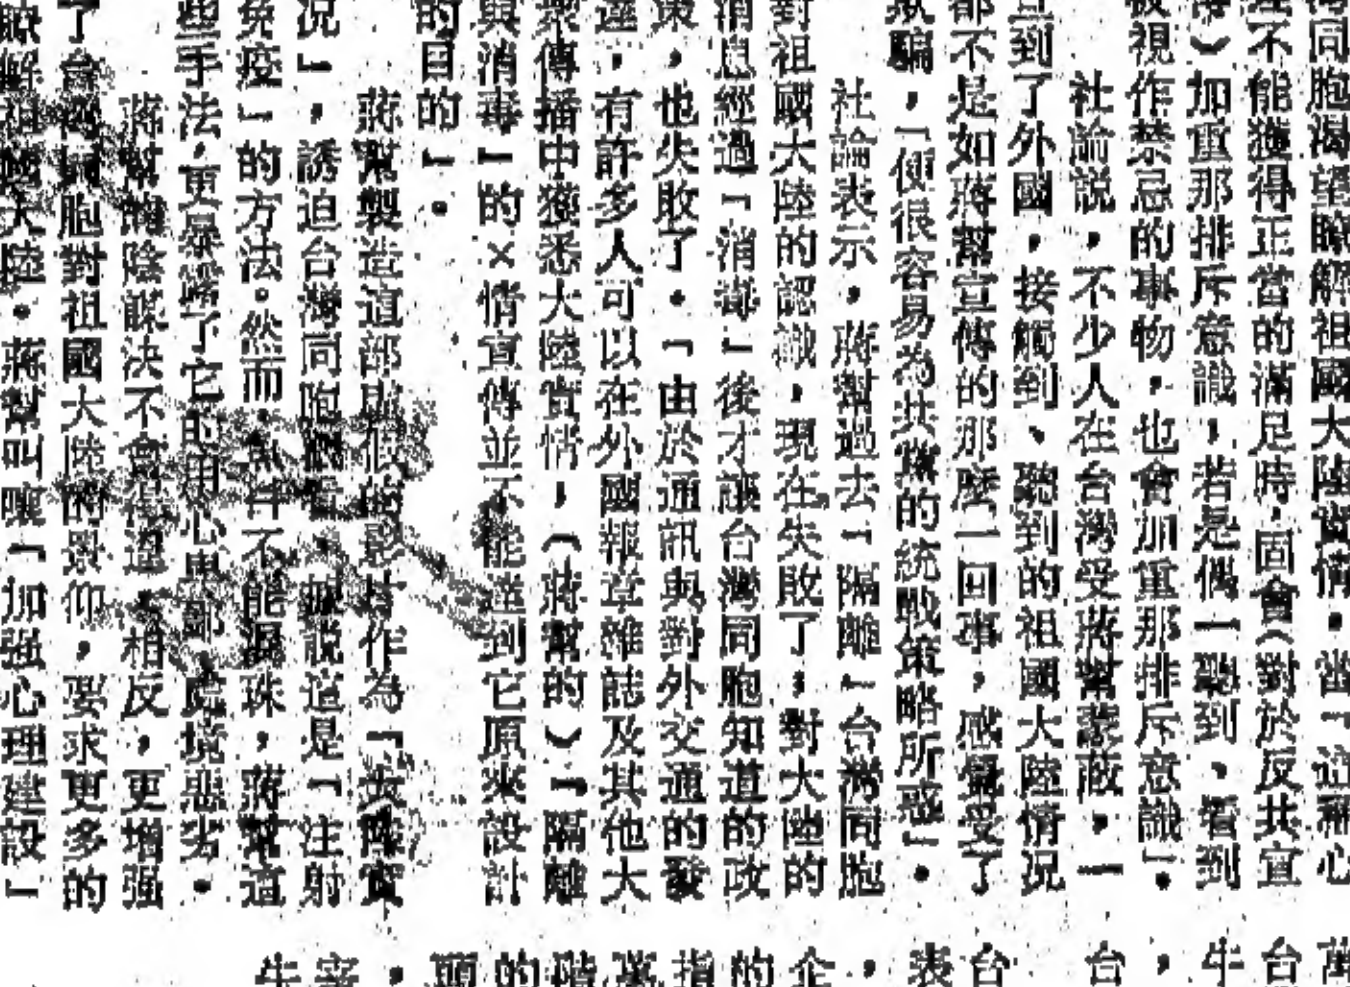 灣同胞渴望瞭解祖國大陸實情。當「這種心
理不能獲得正當的滿足時，固會（對於反共宣
傳）加重那排斥意識，若是偶一聽到、看到
被視作禁忌的事物，也會加重那排斥意識」。
社論説，不少人在台灣受蔣幫蒙蔽，一
旦到了外國，接觸到、聽到的祖國大陸情况
都不是如蔣幫宣傳的那麽一回事，感覺受了
欺騙，「便很容易為共黨的統戰策略所惑」。
社論表示，蔣幫過去「隔離」台灣同胞
對祖國大陸的認識，現在失敗了，對大陸的
消息經過「消毒」後才讓台灣同胞知道的政
策，也失敗了。「由於通訊與對外交通的發
達，有許多人可以在外國報章雜誌及其他大
衆傳播中獲悉大陸實情，（蔣幫的）「隔離
與消毒」的×情宣傳並不能達到它原來設計
的目的」。
蔣幫製造這部 假 影片作為「大陸實
况」，誘迫台灣同胞 看，據説這是「注射
免疫」的方法。然而， 不能 珠，蔣幫這
些手法，更暴露了它的用心 鄙，處境惡劣。
蔣幫 陰謀決不會得逞，相反，更增强
了台灣同胞對祖國大陸的景仰，要求更多的
瞭解祖國大陸。蔣幫叫嚷「加强心理建設」
萬
台
牛
，
台
台
表
，
企
的
指
的
頭
，